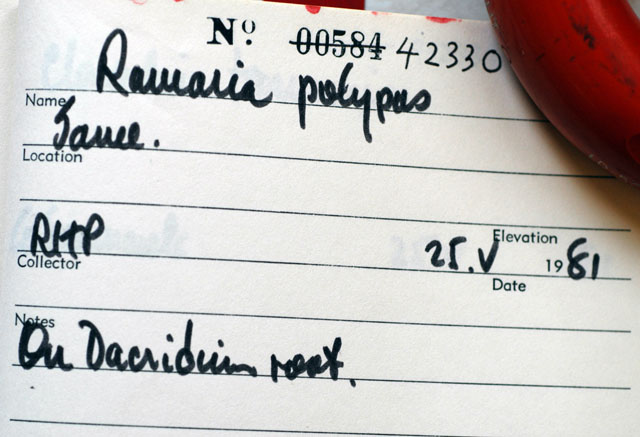 Nº 00584 42330
Name Ramaria polypus
Location Same.
Elevation
Collector RHP 25.V 1981
Date
Notes
On Dacridium root.